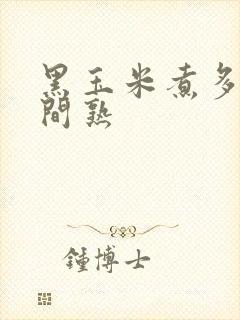 黑玉米煮多
間熟
鍾博士